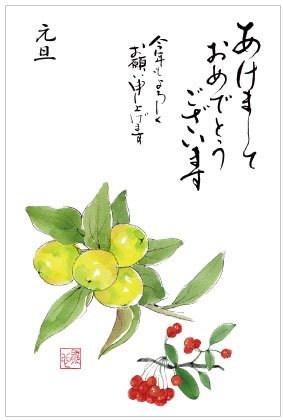 あけまして
おめでとう
ございます
今年もよろしく
お願い申し上げます
元旦